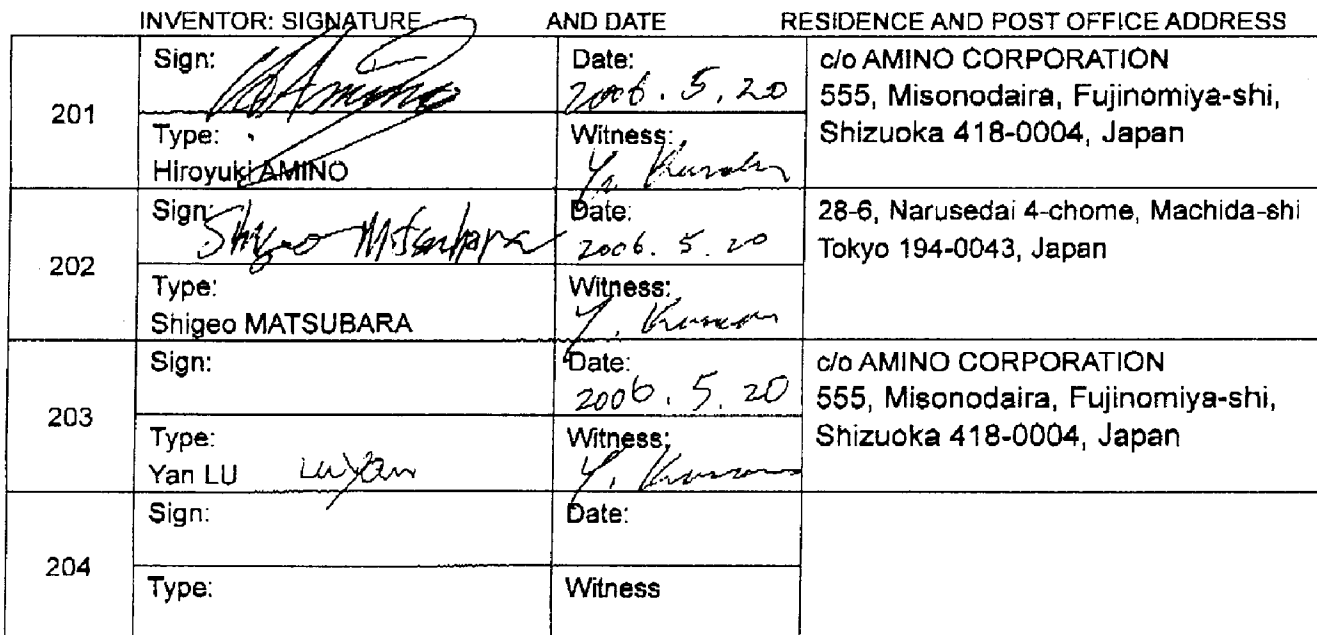 INVENTOR: SIGNATURE AND DATE RESIDENCE AND POST OFFICE ADDRESS
201
Sign:
Amino
Date:
2006. 5. 20
c/o AMINO CORPORATION
555, Misonodaira, Fujinomiya-shi,
Shizuoka 418-0004, Japan
Type:
Hiroyuki AMINO
Witness:
Y.
202
Sign:
Shigeo Matsubara
Date:
2006. 5. 20
28-6, Narusedai 4-chome, Machida-shi
Tokyo 194-0043, Japan
Type:
Shigeo MATSUBARA
Witness:
Y.
203
Sign:
Date:
2006. 5. 20
c/o AMINO CORPORATION
555, Misonodaira, Fujinomiya-shi,
Shizuoka 418-0004, Japan
Type:
Yan LU Lu Yan
Witness:
Y.
204
Sign:
Date:
Type:
Witness